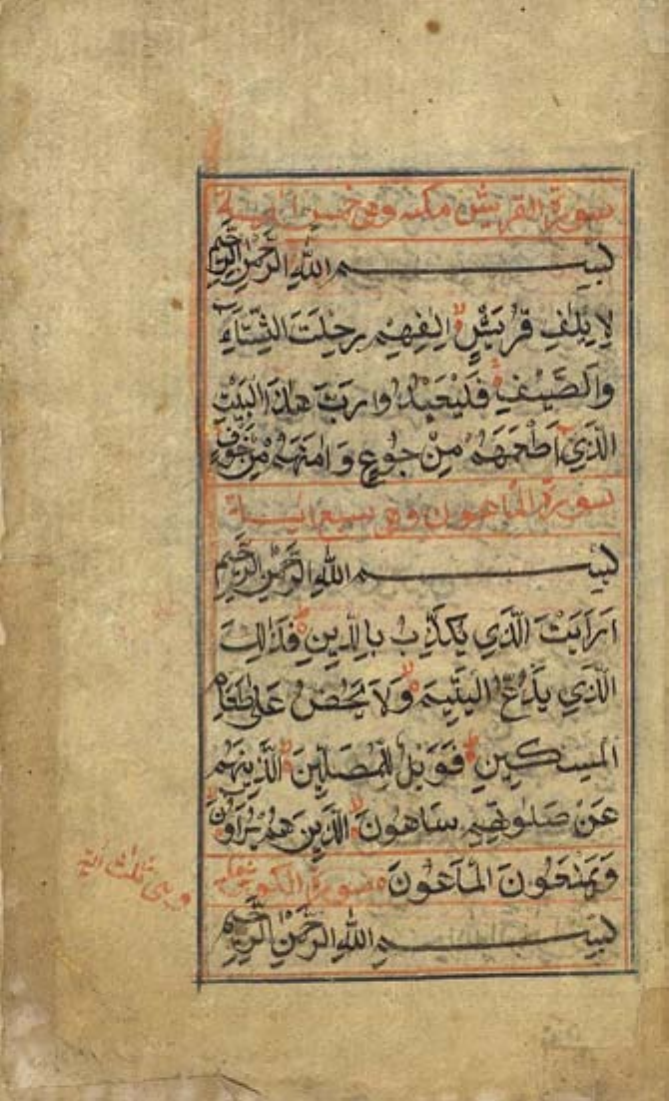 سورة القريش مكية وهى خمس آية
بسم الله الرحمن الرحيم
لِإِيلٰفِ قُرَيْشٍ إِلٰفِهِمْ رِحْلَتَ الشِّتَآءِ
وَالصَّيْفِ فَلْيَعْبُدُوا رَبَّ هٰذَا الْبَيْتِ
الَّذِي أَطْعَمَهُمْ مِنْ جُوعٍ وَاٰمَنَهُمْ مِنْ خَوْفٍ
سورة الماعون وهى سبع اية
بسم الله الرحمن الرحيم
اَرَاَيْتَ الَّذِي يُكَذِّبُ بِالدِّينِ فَذٰلِكَ
الَّذِي يَدُعُّ الْيَتِيمَ وَلَا يَحُضُّ عَلٰى طَعَامِ
الْمِسْكِينِ فَوَيْلٌ لِلْمُصَلِّينَ الَّذِينَ هُمْ
عَنْ صَلٰوتِهِمْ سَاهُونَ الَّذِينَ هُمْ يُرَاؤُنَ
وَيَمْنَعُونَ الْمَاعُونَ سورة الكوثر مكية
وهى ثلث اية
بسم الله الرحمن الرحيم